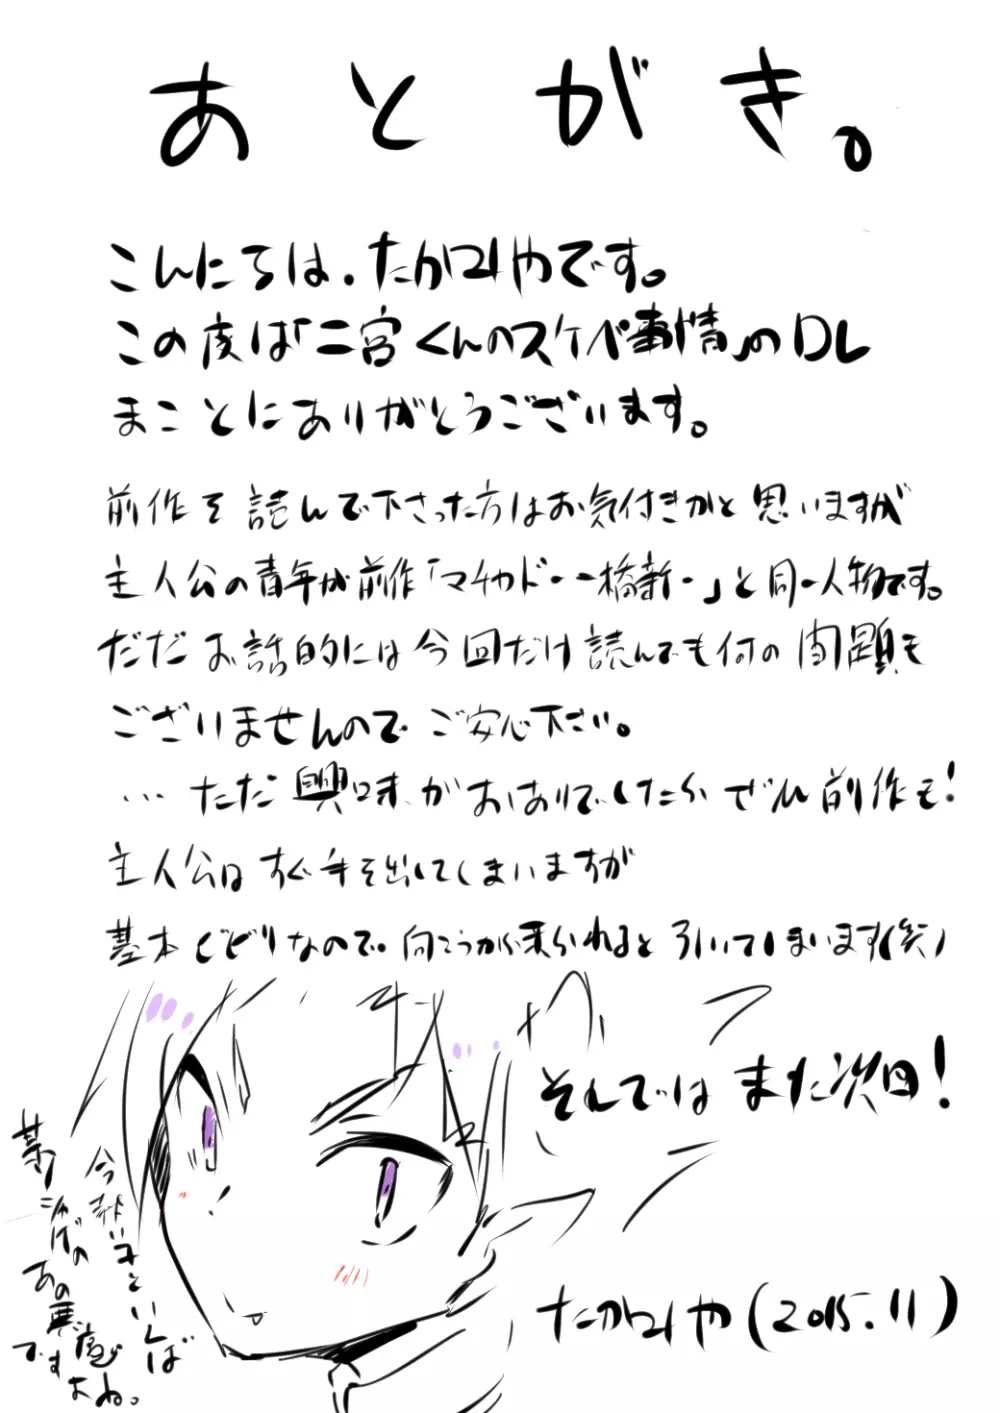 あとがき。
こんにちは、たかツリやです。
この度は「二宮くんのスケベ事情」のDL
まことにありがとうございます。
前作を読んで下さった方はお気付きかと思いますが
主人公の青年が前作「マチカドー一橋新一」と同一人物です。
ただお話的には今回だけ読んでも何の問題も
ございませんのでご安心下さい。
…ただ興味がおありでしたらぜひ前作も!
主人公はすぐ手を出してしまいますが
基本ビビりなので向こうから来られると引いてしまいます(笑)
それではまた次回!
今熱い子といえば
某ソシャゲの
あの悪魔
ですよね。
たかツリや(2015.11)